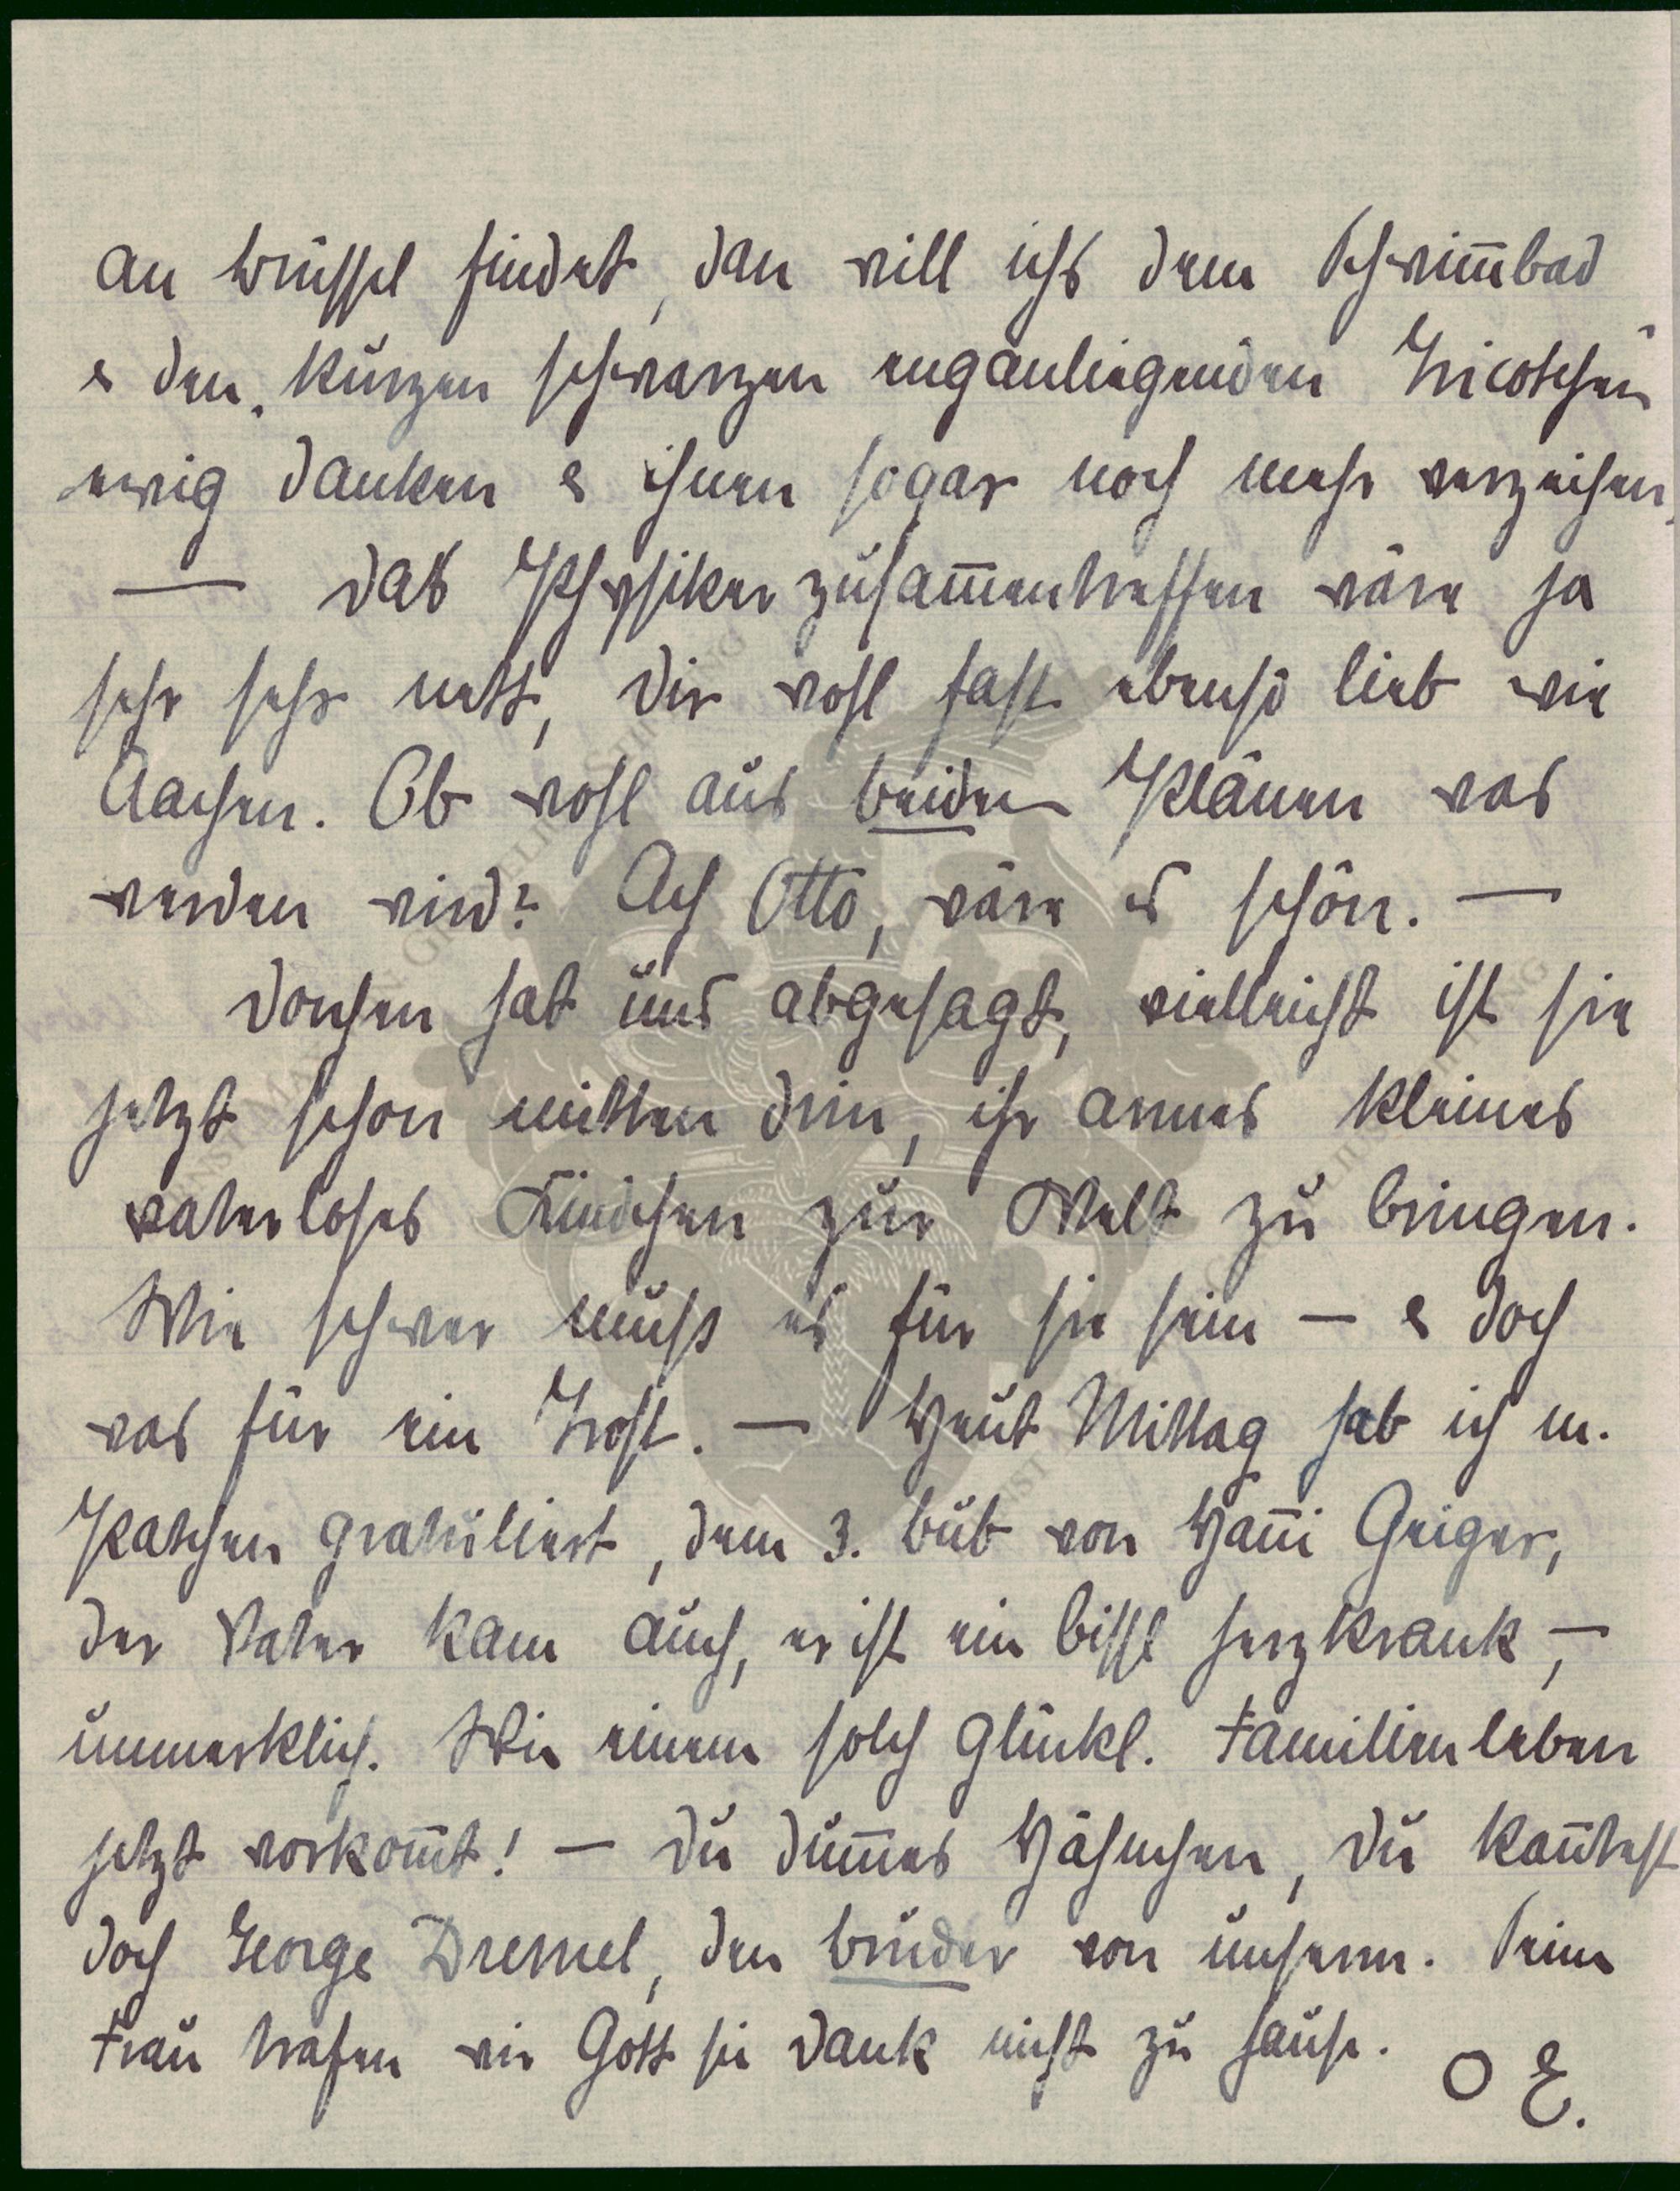 an Brüssel findet, dan will ichs dem Schwim̄bad
& den kurzen schwarzen enganliegenden Tricotchen
ewig danken & ihnen sogar noch mehr verzeihen,
— Das Physikerzusam̄entreffen wäre ja
sehr sehr nett, Dir wohl fast ebenso lieb wie
Aachen. Ob wohl aus beiden Plänen was
werden wird? Ach Otto, wäre es schön. —
Dorchen hat uns abgesagt, vielleicht ist sie
jetzt schon mitten drin, ihr armes kleines
vaterloses Kindchen zur Welt zu bringen.
Wie schwer muss es für sie sein — & doch
was für ein Trost. — Heut Mittag hab ich m.
Patchen gratuliert, dem 3. Bub von Han̄i Geiger,
der Vater kam auch, er ist ein bissl herzkrank, —
unmerklich. Wie einem solch glückl. Familienleben
jetzt vorkom̄t! — Du dum̄es Hähnchen, Du kan̄test
doch George Dremel, den Bruder von unserm. Seine
Frau trafen wir Gott sei Dank nicht zu hause.
O E.